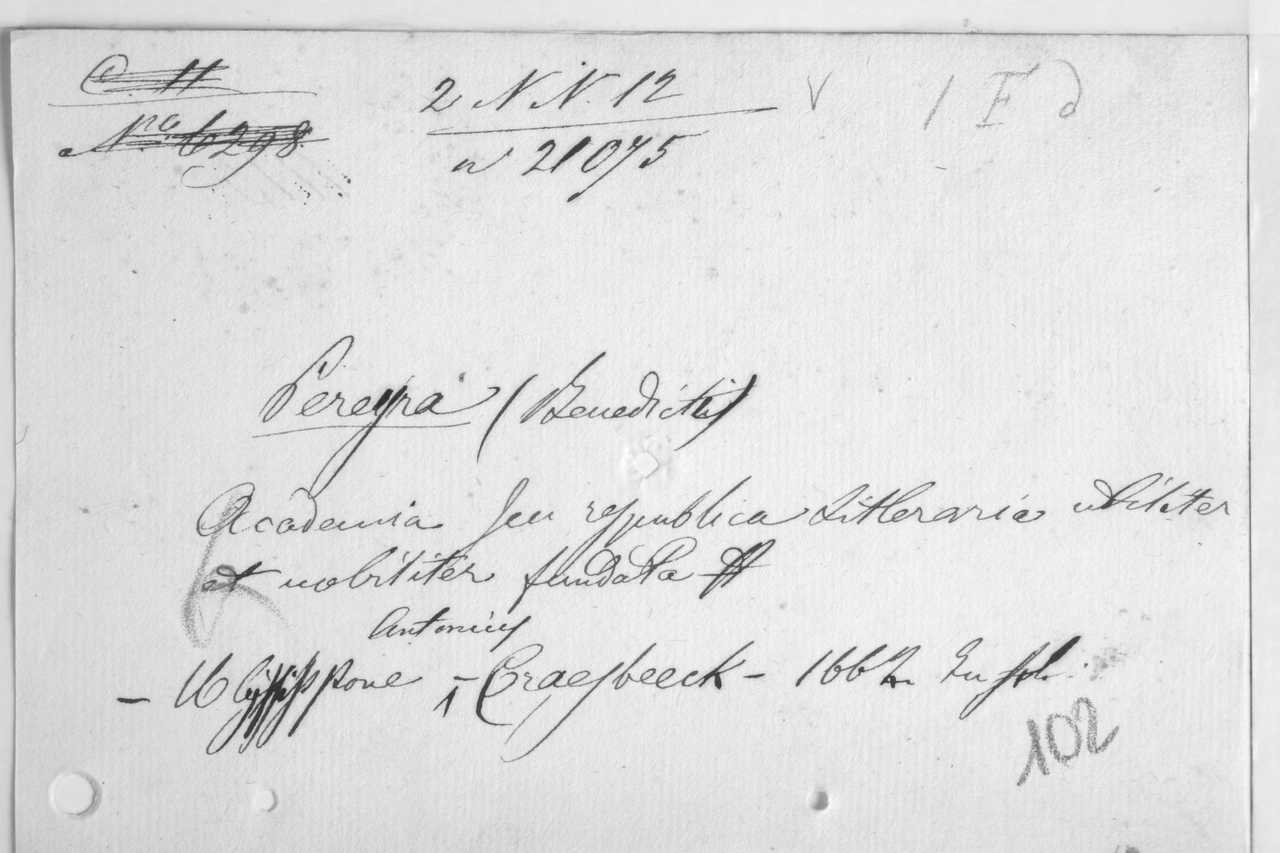 C. 11
Nro. 6298.
2 N N. 12
n 21075
V
1 E d
Pereyra (Benedictus)
Academia seu respublica Litteraria utiliter
et nobiliter fundata
Antonius
- Ulyssippone - Craesbeeck - 1662 In fol.
102